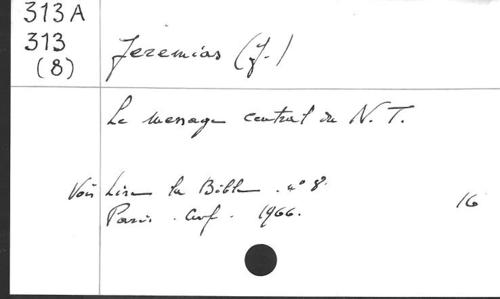 313 A
313
(8)
Jeremias (J.)
Le message central du N.T.
Voir Lire la Bible. n° 8.
Paris. Cerf. 1966.
16